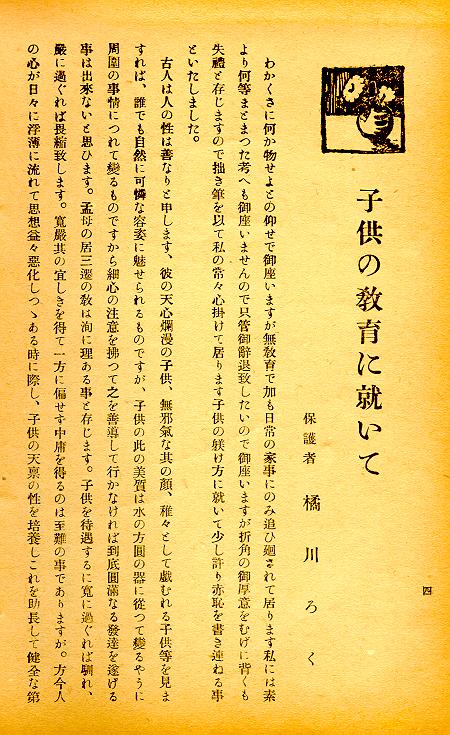 子供の教育に就いて
保護者　橘川ろく
わかくさに何か物せよとの仰せで御座いますが無教育で加も日常の家事にのみ追ひ廻されて居ります私には素
より何等まとまつた考へも御座いませんので只管御辭退致したいので御座いますが折角の御厚意をむげに背くも
失禮と存じますので拙き筆を以て私の常々心掛けて居ります子供の躾け方に就いて少し許り赤恥を書き連ねる事
といたしました。
古人は人の性は善なりと申します、彼の天心爛漫の子供、無邪氣な其の顏、稚々として戯むれる子供等を見ま
すれば、誰でも自然に可憐な容姿に魅せられるものですが、子供の此の美質は水の方圓の器に從つて變るやうに
周圍の事情につれて變るものですから細心の注意を拂つて之を善導して行かなければ到底圓滿なる發達を遂げる
事は出來ないと思ひます。孟母の居三遷の敎は洵に理ある事と存じます。子供を待遇するに寛に過ぐれば馴れ、
嚴に過ぐれば畏縮致します。寛嚴其の宜しきを得て一方に偏せず中庸を得るのは至難の事でありますが。方今人
の心が日々に浮薄に流れて思想益々惡化しつゝある時に際し、子供の天禀の性を培養しこれを助長して健全な第
四